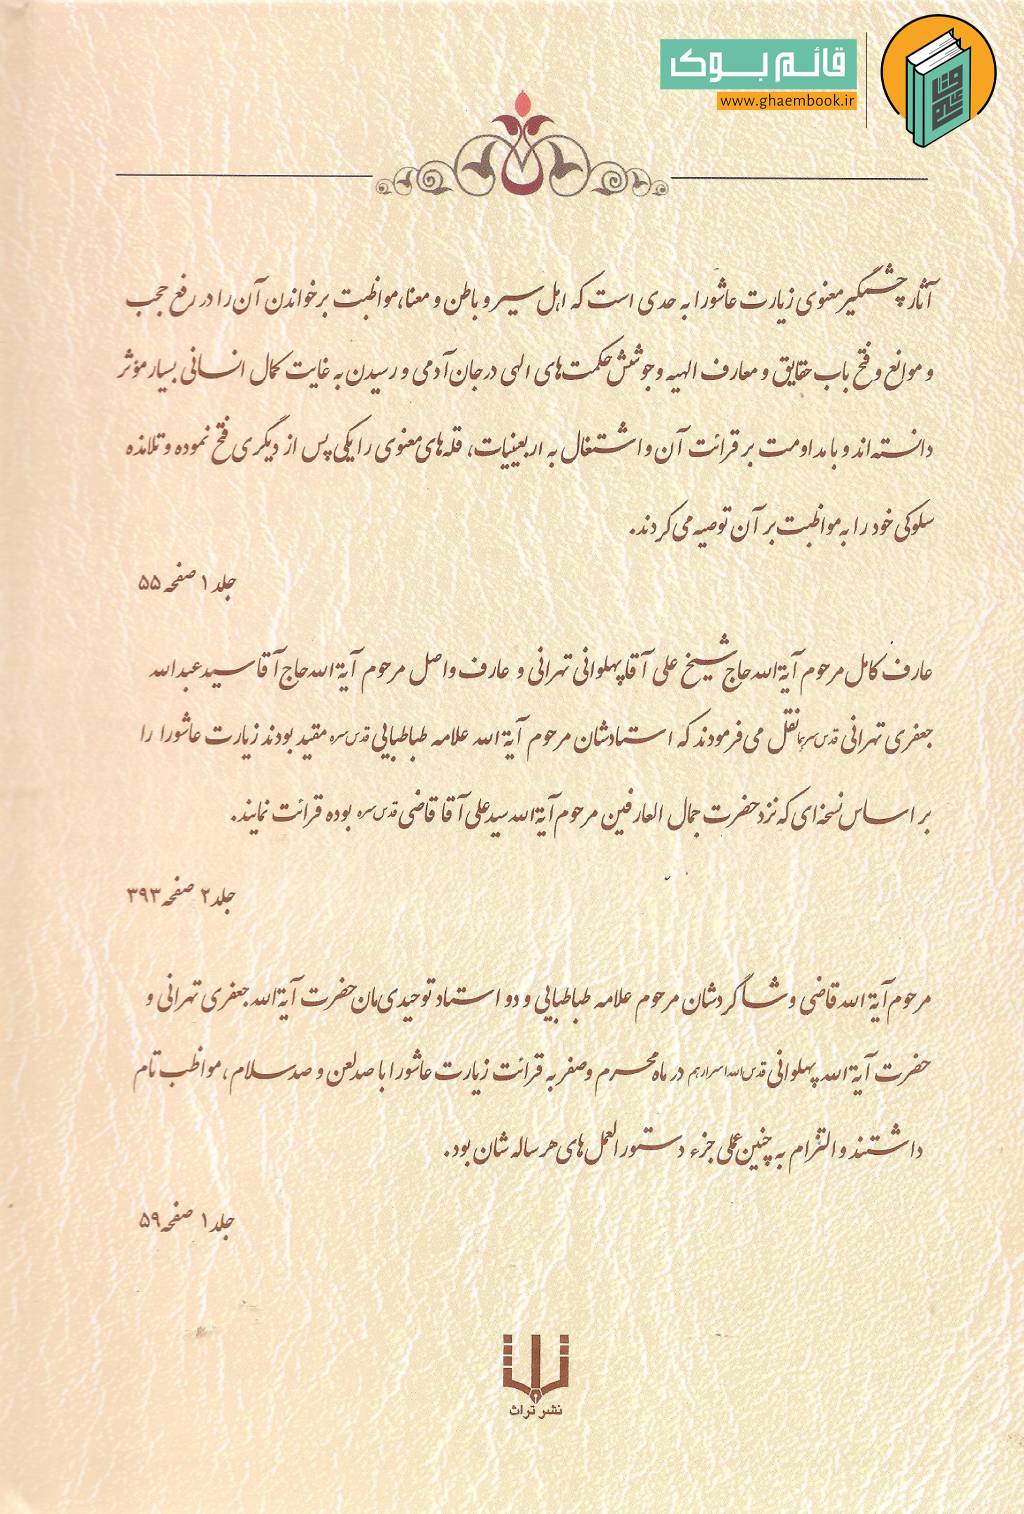 قائم بوک
www.ghaembook.ir
آثار چشمگیر معنوی زیارت عاشورا به حدی است که اهل سیر و باطن و معنا، مواظبت بر خواندن آن را در رفع حجب
و موانع و فتح باب حقایق و معارف الهیه و جوشش حکمت‌های الهی در جان آدمی و رسیدن به غایت کمال انسانی بسیار مؤثر
دانسته‌اند و با مداومت بر قرائت آن و اشتغال به اربعینیات، قله‌های معنوی را یکی پس از دیگری فتح نموده و تلامذه
سلوکی خود را به مواظبت بر آن توصیه می‌کردند.
جلد ۱ صفحه ۵۵
عارف کامل مرحوم آیة الله حاج شیخ علی آقا پهلوانی تهرانی و عارف واصل مرحوم آیة الله حاج آقا سید عبدالله
جعفری تهرانی قدس سرهما نقل می‌فرمودند که استادشان مرحوم آیة الله علامه طباطبایی قدس سره مقید بودند زیارت عاشورا را
بر اساس نسخه‌ای که نزد حضرت جمال العارفین مرحوم آیة الله سید علی آقا قاضی قدس سره بوده قرائت نمایند.
جلد ۲ صفحه ۳۹۳
مرحوم آیة الله قاضی و شاگردشان مرحوم علامه طباطبایی و دو استاد توحیدی‌مان حضرت آیة الله جعفری تهرانی و
حضرت آیة الله پهلوانی قدس الله اسرارهم در ماه محرم و صفر به قرائت زیارت عاشورا با صد لعن و صد سلام، مواظب تام
داشتند و التزام به چنین عملی جزء دستورالعمل‌های هر ساله شان بود.
جلد ۱ صفحه ۵۹
نشر تراث